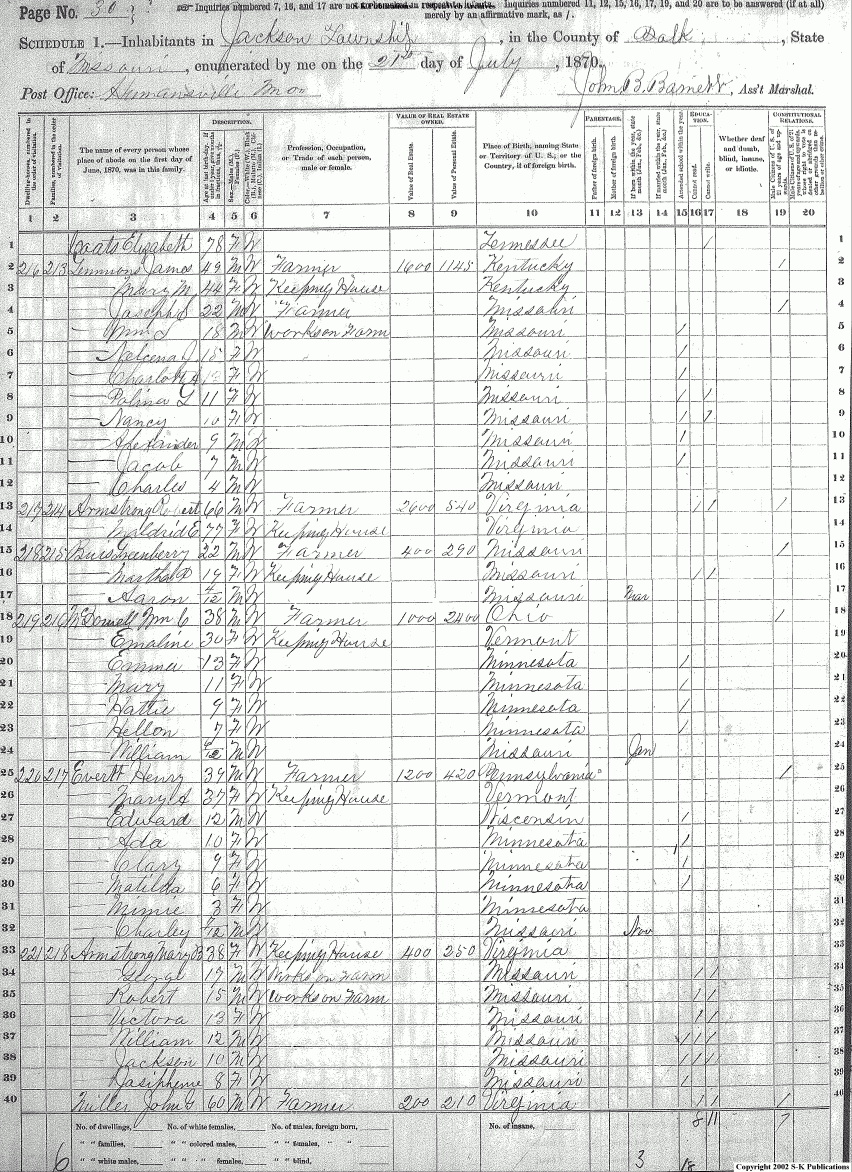 Page No. 30
Inquiries numbered 7, 16, and 17 are not to be asked in respect to infants. Inquiries numbered 11, 12, 15, 16, 17, 19, and 20 are to be answered (if at all)
merely by an affirmative mark, as /.
SCHEDULE 1.—Inhabitants in Jackson Township, in the County of Polk, State
of Missouri, enumerated by me on the 21st day of July, 1870.
Post Office: Humansville Mo John B. Barnett, Ass't Marshal.
DESCRIPTION. VALUE OF REAL ESTATE OWNED. PARENTAGE. EDUCATION. CONSTITUTIONAL RELATIONS.
The name of every person whose place of abode on the first day of June, 1870, was in this family.
Profession, Occupation, or Trade of each person, male or female.
Value of Real Estate. Value of Personal Estate.
Place of Birth, naming State or Territory of U. S.; or the Country, if of foreign birth.
Father of foreign birth. Mother of foreign birth.
Attended school within the year. Cannot read. Cannot write.
Whether deaf and dumb, blind, insane, or idiotic.
1 2 3 4 5 6 7 8 9 10 11 12 13 14 15 16 17 18 19 20
1 Coats Elizabeth 78 F W Tennessee / 1
2 216 213 Lemmons James 49 M W Farmer 1600 1145 Kentucky / 2
3 — Mary M 44 F W Keeping House Kentucky 3
4 — Joseph S 22 M W Farmer Missouri / 4
5 — Wm L 18 M W Works on Farm Missouri / 5
6 — 15 F W Missouri / 6
7 — Charlott A F W Missouri / 7
8 — 11 F W Missouri / / 8
9 — Nancy 10 F W Missouri / / 9
10 — Alexander 9 M W Missouri / 10
11 — Jacob 7 M W Missouri / 11
12 — Charles 4 M W Missouri 12
13 217 214 Armstrong Robert 66 M W Farmer 2600 540 Virginia / / / 13
14 — Mildrid E 77 F W Keeping House Virginia 14
15 218 215 Greenberry 22 M W Farmer 400 290 Missouri / 15
16 — Martha 19 F W Keeping House Missouri / / 16
17 — Aaron 4/12 M W Missouri Mar 17
18 219 216 McDowell Wm C 38 M W Farmer 1000 2400 Ohio / 18
19 — Emaline 30 F W Keeping House Vermont 19
20 — Emma 13 F W Minnesota / 20
21 — Mary 11 F W Minnesota / 21
22 — Hattie 9 F W Minnesota / 22
23 — Hellon 7 F W Minnesota / 23
24 — William 6/12 M W Missouri Jan 24
25 220 217 Evertt Henry 39 M W Farmer 1200 420 Pennsylvania / 25
26 — Mary A 37 F W Keeping House Vermont 26
27 — Edward 12 M W Wisconsin / 27
28 — Ada 10 F W Minnesota / 28
29 — Clary 9 F W Minnesota / 29
30 — Matilda 6 F W Minnesota / 30
31 — Minnie 3 F W Minnesota 31
32 — Charley M W Missouri Nov 32
33 221 218 Armstrong Mary B 38 F W Keeping House 400 250 Virginia 33
34 — George 17 M W Works on Farm Missouri / / 34
35 — Robert 15 M W Works on Farm Missouri / / 35
36 — Victora 13 F W Missouri / / 36
37 — William 12 M W Missouri / / / 37
38 — Jackson 10 M W Missouri / / / 38
39 — Josipheme 8 F W Missouri / 39
40 Miller John G 60 M W Farmer 200 210 Virginia / / / 40
No. of dwellings, No. of white females, No. of males, foreign born, No. of insane, 8 11 7
" " families, " " colored males, " " females, " "
6 " " white males, " " " females, " " blind, 3 18
Copyright 2002 S-K Publications